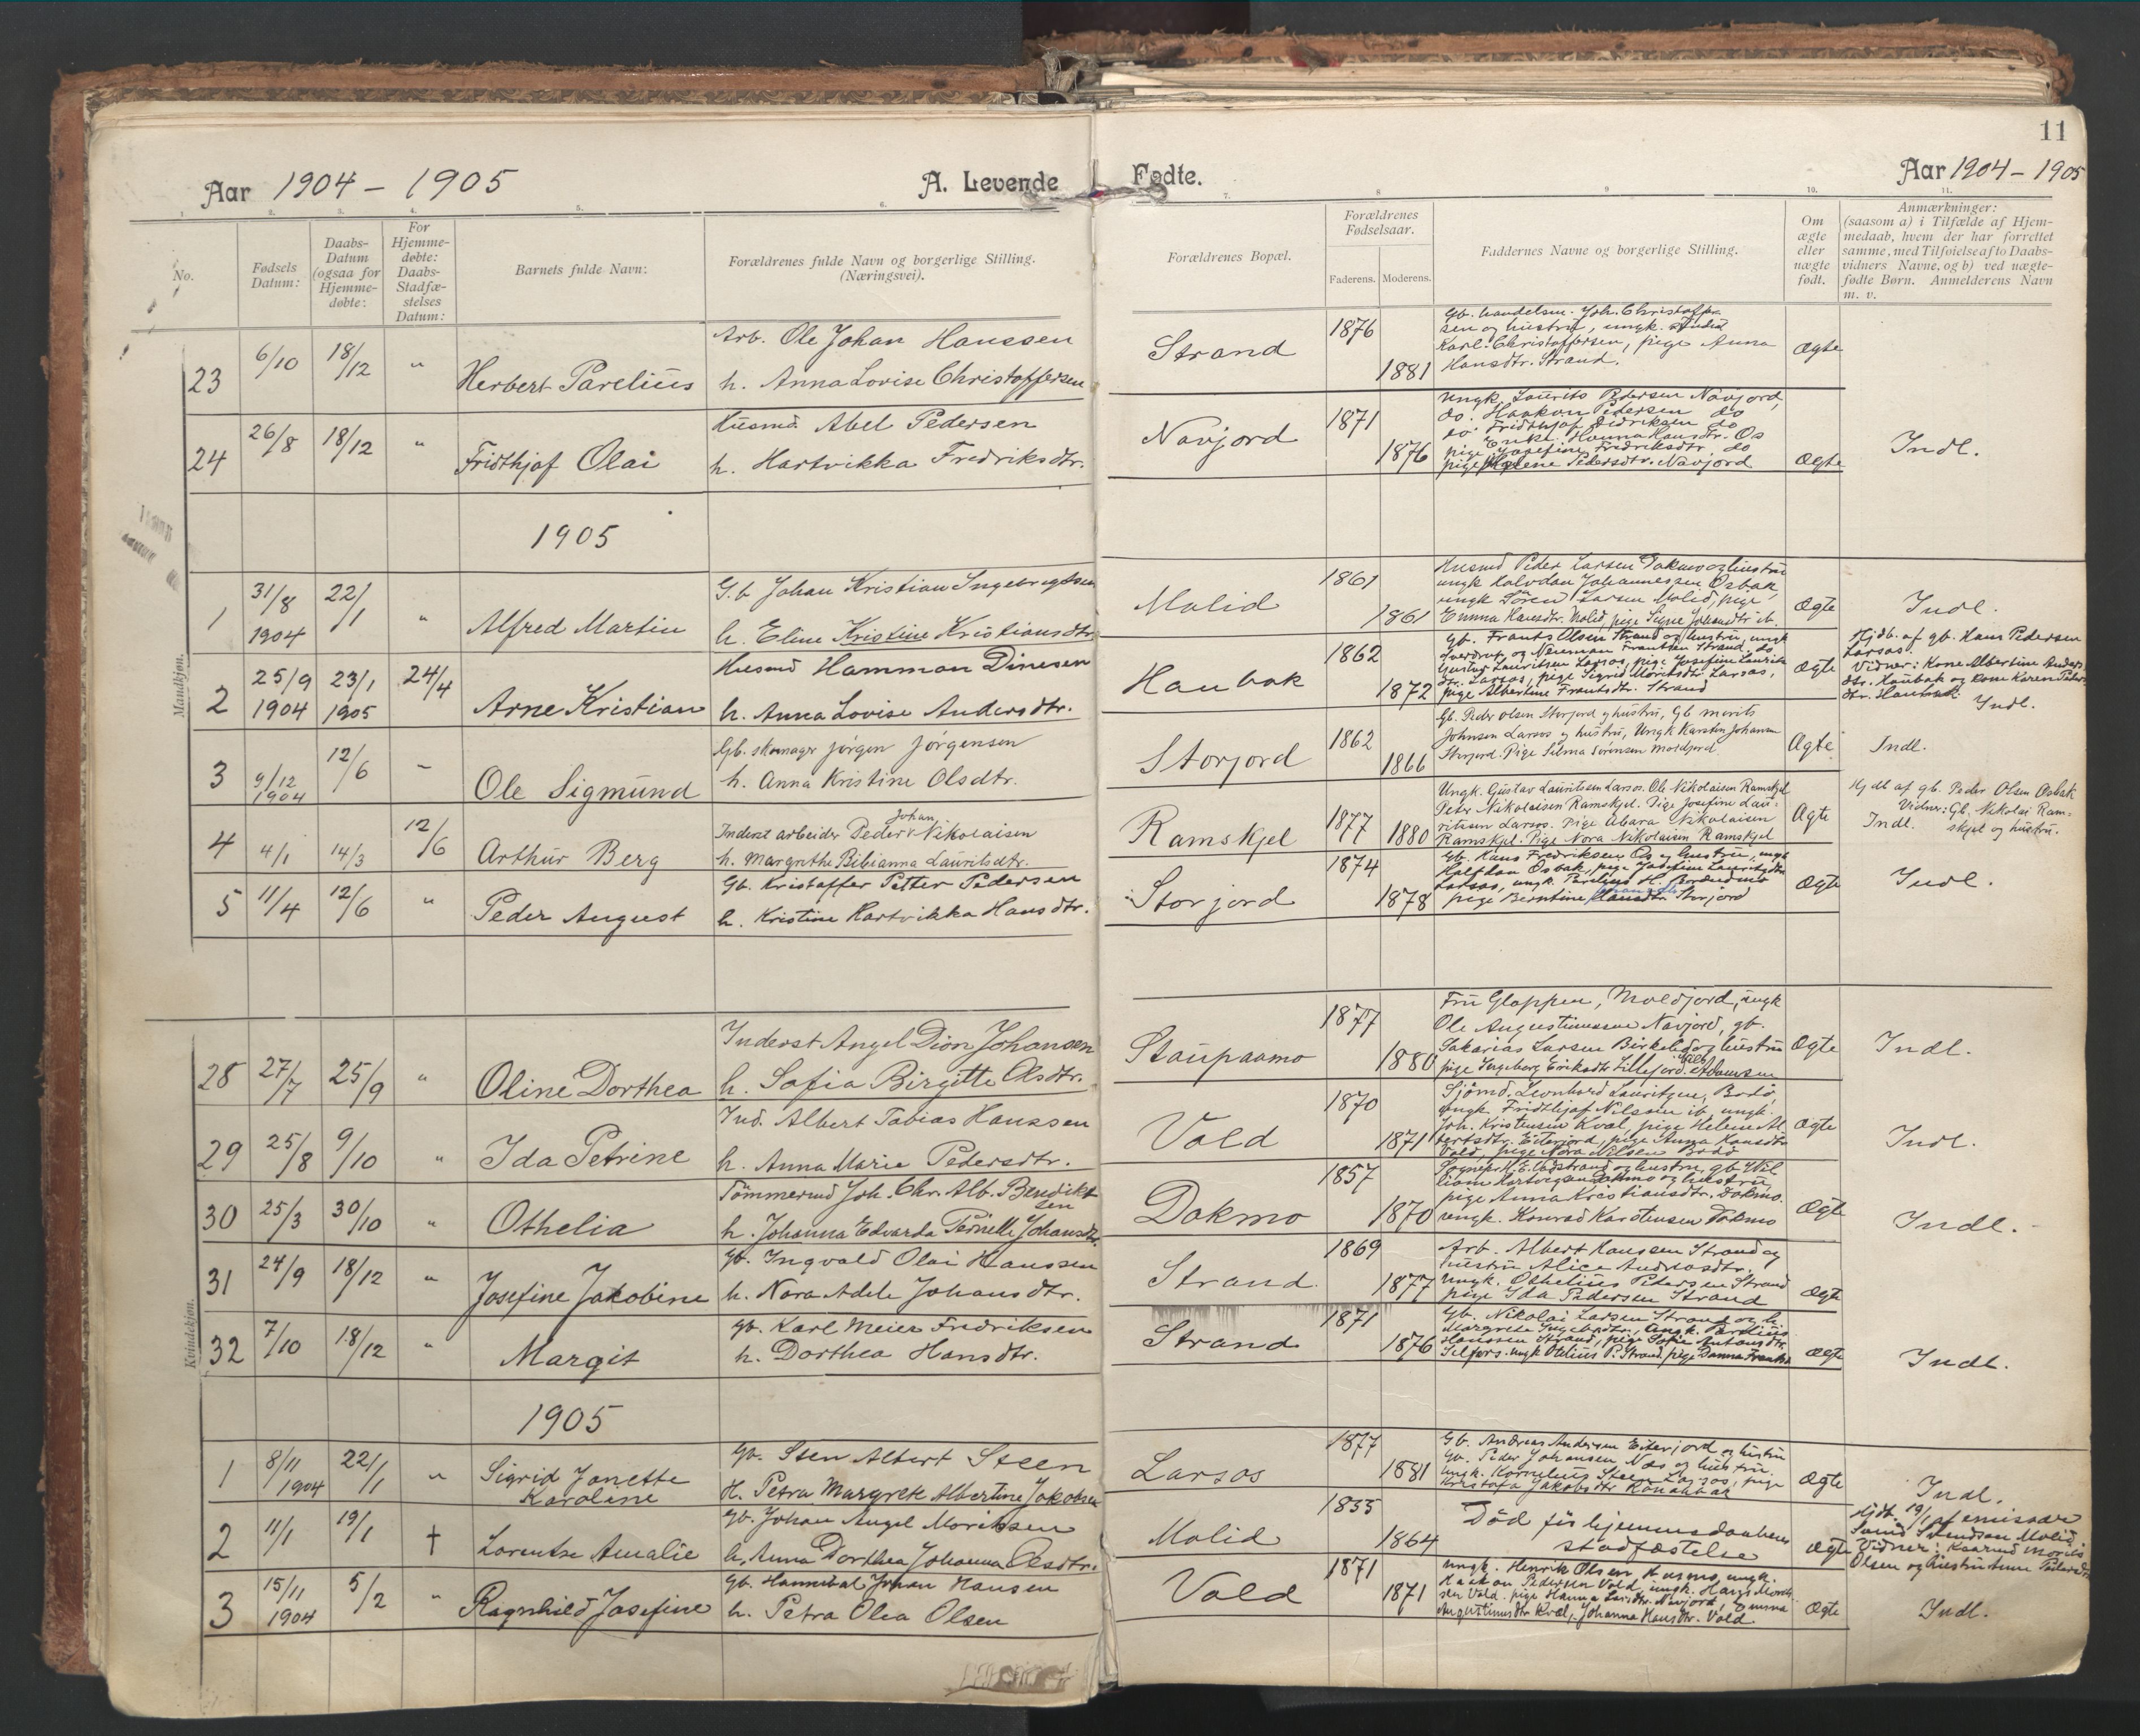 11
Aar 1904 - 1905
A. Levende
Fødte.
Aar 1904 - 1905
1. 2. 3. 4. 5. 6. 7. 8 9 10. 11.
No.
Fødsels Datum:
Daabs-Datum (ogsaa for Hjemme-døbte:
For Hjemme-døbte: Daabs-Stadfæ-stelses Datum:
Barnets fulde Navn:
Forældrenes fulde Navn og borgerlige Stilling.
(Næringsvei).
Forældrenes Bopæl.
Forældrenes Fødselsaar.
Faderens. Moderens.
Faddernes Navne og borgerlige Stilling.
Om ægte eller uægte født.
Anmærkninger:
(saasom a) i Tilfælde af Hjem-
medaab, hvem der har forrettet
samme, med Tilføielse af to Daabs-
vidners Navne, og b) ved uægte-
fødte Børn. Anmelderens Navn
m. v.
Mandkjøn.
23 6/10 18/12 " Herbert Parelius
Arb. Ole Johan Hanssen
h. Anna Lovise Christoffersen
Strand 1876 1881
Gb. handelsm. Joh. Christoffer-
sen og hustru, ungk.
Karl Christoffersen, pige Anna
Hansdtr. Strand.
Ægte
24 26/8 18/12 " Fridthjof Olai
Husmd Abel Pedersen
h. Hartvikka Fredriksdtr.
Navjord 1871 1876
Ungk. Laurits Pedersen Navjord,
do. Haakon Pedersen do
do. Fridthjof Didriksen do
Enke Hanna Hansdtr. Os
pige Josefine Fredriksdtr. do
pige Helene Pedersdtr. Navjord
Ægte Indl.
1905
1 31/8 1904 22/1 " Alfred Martin
G.b Johan Kristian Ingebrigtsen
h. Eline Kristine Kristiansdtr.
Molid 1861 1861
Husmd Peder Larsen Dakmo og hustru
ungk Halvdan Johannessen Osbak,
ungk Sören Larsen Molid, pige
Emma Hansdtr. Molid, pige Signe Johandtr ib.
Ægte Indl.
2 25/9 1904 23/1 1905 24/4 Arne Kristian
Husmd Hamman Dinesen
h. Anna Lovise Andersdtr.
Haubak 1862 1872
Gb. Frants Olsen Strand og hustru, ungk
Sverdrup og Nauman Frantsen Strand, do
Gustav Lauritsen Larsos, pige Josefine Laurits
dtr. Larsos, pige Sigrid Moritsdtr Larsos,
pige Albertine Frantsdtr. Strand
Ægte
Hjdb. af gb. Hans Pedersen
Larsos.
Vidner: Kone Albertine Anders
dtr. Haubak og kone Karen Peders
dtr. Haubak
Indl.
3 9/12 1904 12/6 - Ole Sigmund
Gb. skomager Jörgen Jörgensen
h. Anna Kristine Olsdtr.
Storjord 1862 1866
Gb. Peder Olsen Storjord og hustru, Gb Morits
Johnsen Larsos og hustru, Ungk Karsten Johansen
Storjord. Pige Selma Sörensen Moldjord
Ægte Indl.
4 4/1 14/3 12/6 Arthur Berg
Inderst arbeider Peder Johan Nikolaisen
h. Margrethe Bibianna Lauritsdtr.
Ramskjel 1877 1880
Ungk. Gustav Lauritsen Larsos. Ole Nikolaisen Ramskjel
Peder Nikolaisen Ramskjel. Pige Josefine Lau-
ritsen Larsos. Pige Nikolaisen
Ramskjel. Pige Nora Nikolaisen Ramskjel
Ægte
Hj dbt af gb. Peder Olsen Osbak
Vidner: Gb. Nikolai Ram-
Indl. skjel og hustru.
5 11/4 12/6 " Peder August
Gb. Kristoffer Petter Pedersen
h. Kristine Hartvikka Hansdtr.
Storjord 1874 1878
Gb. Hans Fredriksen Os og hustru, ungk
Halfdan Osbak, pige Josefine Lauritsdtr
Larsos, ungk. Parelius H.
pige Berntine Hansdtr Storjord
Ægte Indl.
Kvindekjøn.
28 27/7 25/9 " Oline Dorthea
Inderst Angel Dion Johansen
h. Sofia Birgitte Olsdtr.
Staupaamo 1877 1880
Fru Gloppen, Moldjord, ungk
Ole Augustinussen Navjord, gb.
Sakarias Larsen Birkelid og hustru
pige Ingeborg Eriksdtr Lillefjord. Adamsen
Ægte Indl.
29 25/8 9/10 " Ida Petrine
Ind. Albert Tobias Hanssen
h. Anna Marie Pedersdtr.
Vold 1870 1871
Sjömd. Leonhard Lauritzen, Bodö,
ungk. Fridthjof Nilssen ib, ungk.
Joh. Kristensen Kvæl, pige Helene Al-
bertsdtr. Eiterjord, pige Anna Hansdtr
Vold, pige Nora Nilsen Bodö
Ægte Indl.
30 25/3 30/10 " Othelia
Tömmermd Joh. Chr. Alb. Benedikt
sen
h. Johanna Edvarda Pernille Johansdtr.
Dokmo 1857 1870
Sognepr. H. E. Vadstrand og hustru, gb. Wil
liam Hartvigsen Dokmo og hustru,
pige Anna Kristiansdtr. Dokmo.
ungk. Konrad Karstensen Dokmo
Ægte Indl.
31 24/9 18/12 " Josefine Jakobine
Gb. Ingvald Olai Hanssen
h. Nora Adele Johansdtr.
Strand 1869 1877
Arb. Albert Hanssen Strand og
hustru Alice Andreasdtr.
Ungk. Othelius Pedersen Strand
pige Ida Pedersen Strand
Ægte
32 7/10 18/12 " Margit
gb. Karl Meier Fredriksen
h. Dorthea Hansdtr.
Strand 1871 1876
Gb. Nikolai Larsen Strand og h.
Margrete Ingebrdtr., Ungk. Parelius
Hanssen Strand, pige Sofie Antonsdtr.
Selfors. ungk Otelius P. Strand, pige Danna Frants
Ægte Indl.
1905
1 8/11 1904 22/1 " Sigrid Janette
Karoline
Gb. Sten Albert Steen
H. Petra Margrete Albertine Jakobsen
Larsos 1877 1881
Gb. Andreas Andersen Eiterjord og hustru
Gb. Peder Johansen Næs og hustru.
Ungk. Kornelius Steen Larsos, pige
Kristofa Jakobsdtr
Ægte Indl.
2 11/1 19/1 † Lorentse Amalie
Gb. Johan Angel Moritsen
h. Anna Dorthea Johanna Olsdtr.
Molid 1855 1864
Död för hjemmedaabens
stadfæstelse
Ægte
Hjdt. 19/1 af emissær
Svendsen Molid,
Vidner: Morits
Olsen og hustru Anne Pedersdtr
3 15/11 1904 5/2 " Ragnhild Josefine
Gb. Hannibal Johan Hansen
h. Petra Olea Olsen
Vold 1871 1871
Ungk. Henrik Olsen ungk.
Haakon Pedersen Vold, ungk. Hans Morit
sen Vold. pige Hanna Larsdtr. Navjord, Emma
Augustinusdtr Kvæl, Johanna Hansdtr. Vold
Ægte Indl.